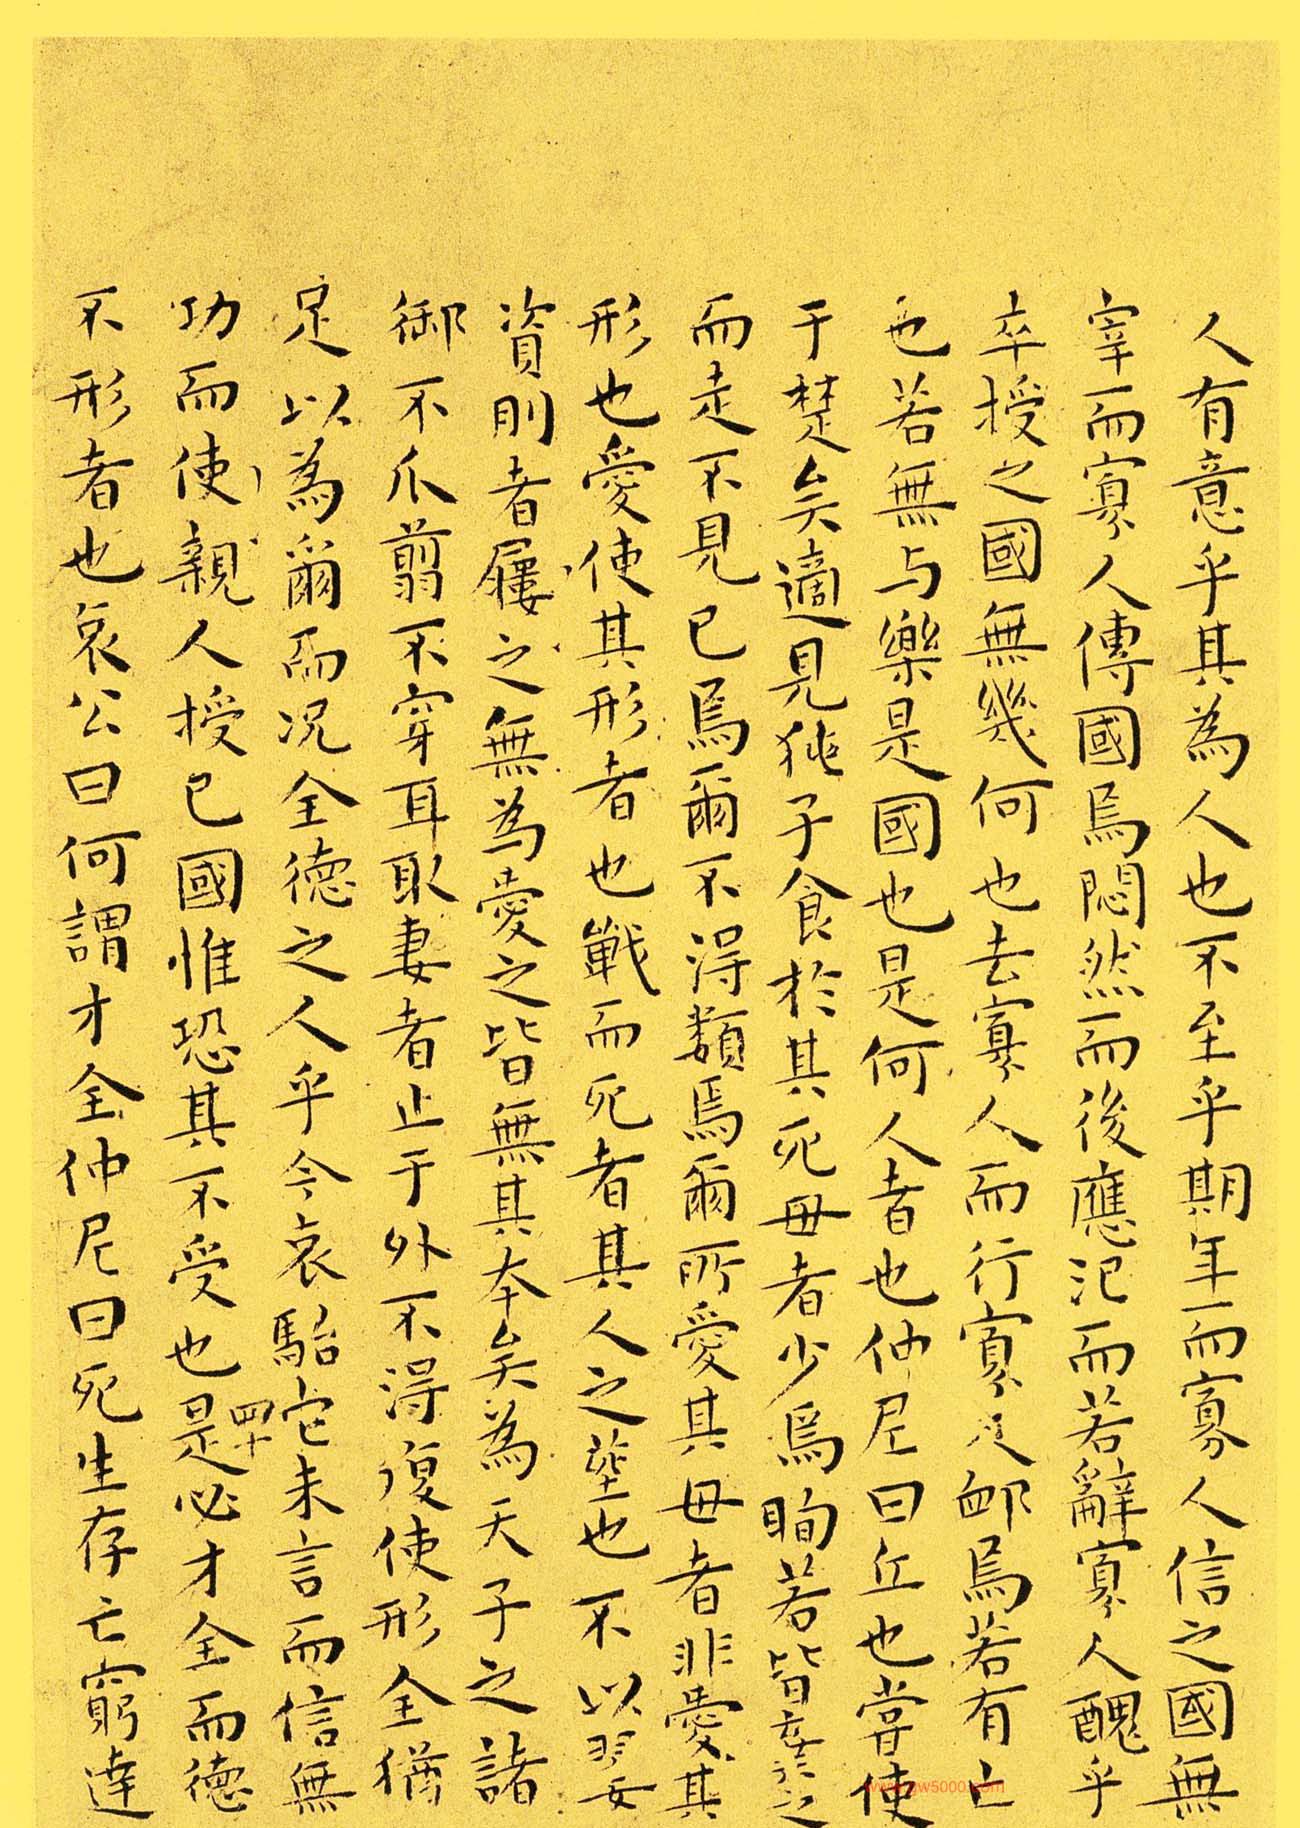 人有意乎其為人也不至乎期年而寡人信之國無
宰而寡人傳國焉悶然而後應氾而若辭寡人醜乎
卒授之國無幾何也去寡人而行寡人卹焉若有亡
也若無与樂是國也是何人者也仲尼曰丘也嘗使
于楚矣適見㹠子食於其死母者少焉眴若皆棄之
而走不見己焉爾不得類焉爾所愛其母者非愛其
形也愛使其形者也戰而死者其人之塟也不以翣
資刖者屨之無為愛之皆無其本矣為天子之諸
御不爪翦不穿耳取妻者止于外不得復使形全猶
足以為爾而况全德之人乎今哀駘它未言而信無
功而使親人授己國惟恐其不受也是必才全而德
四十
不形者也哀公曰何謂才全仲尼曰死生存亡窮達